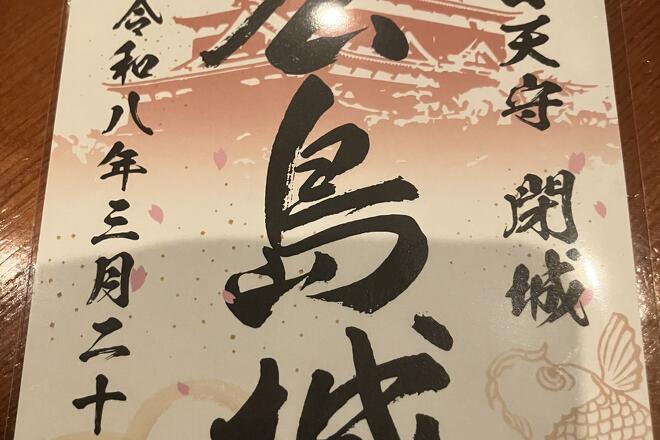 天守 閉城
広島城
令和八年三月二十